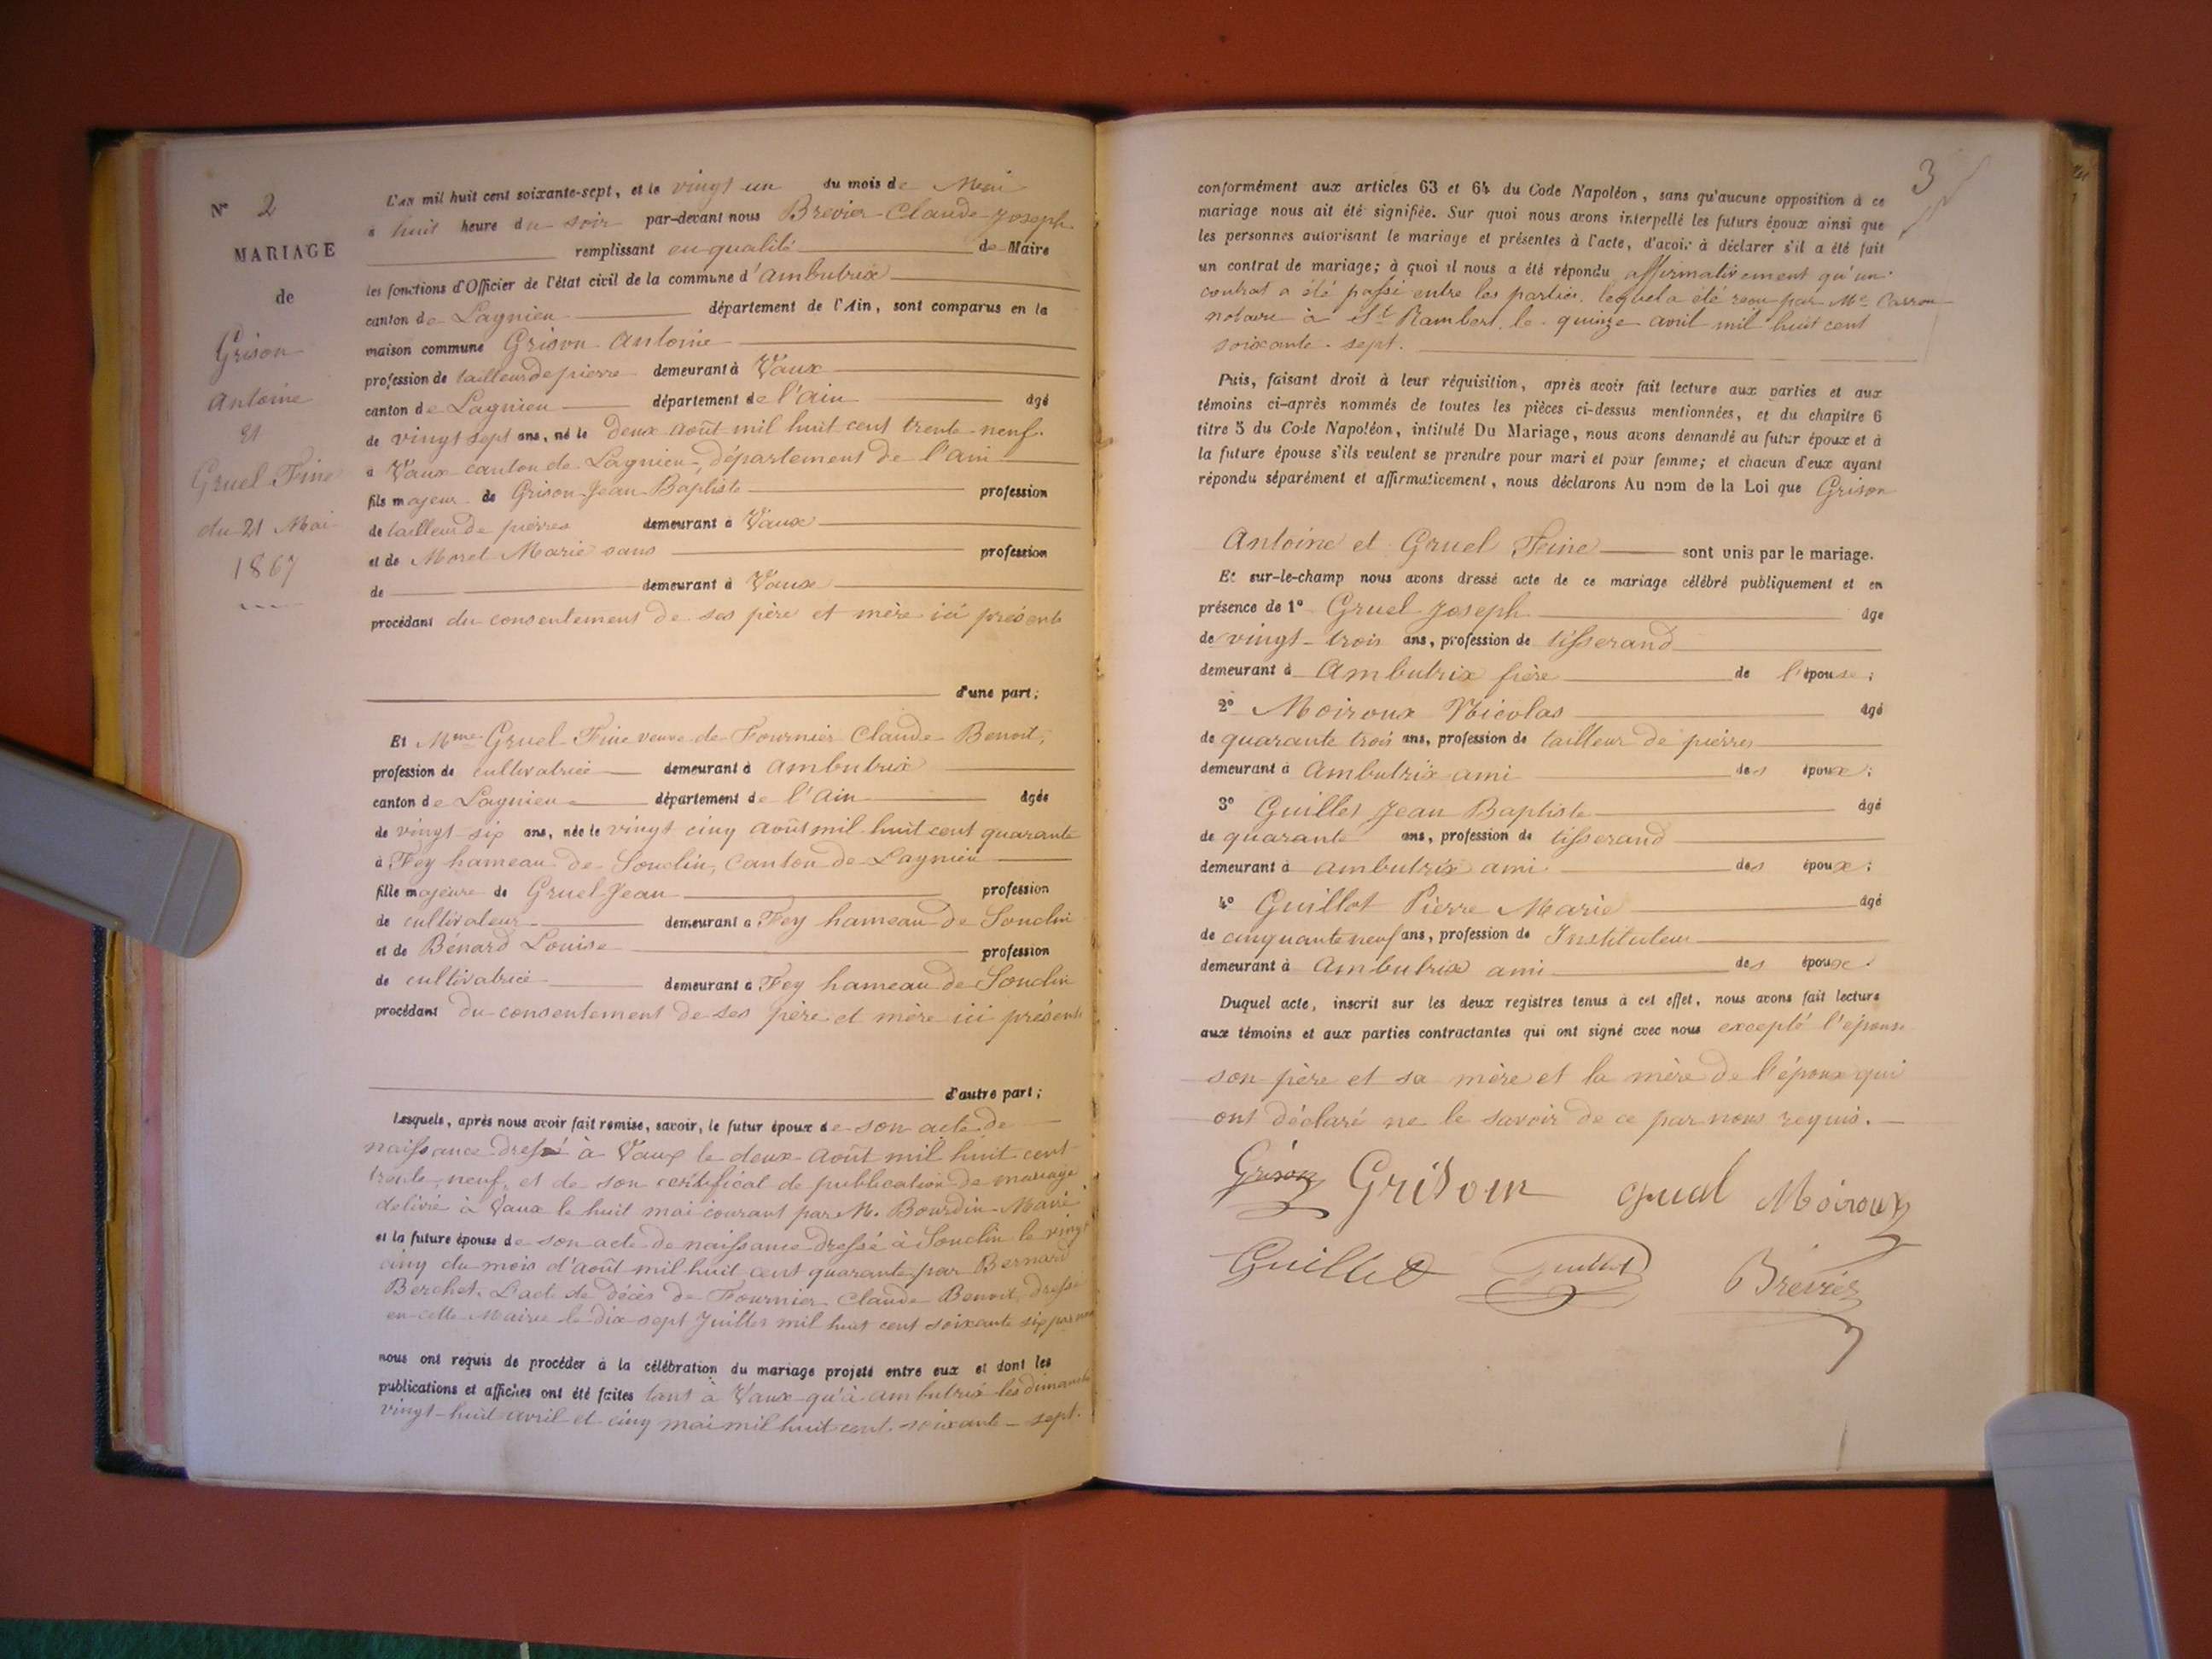 N° 2
MARIAGE
de
Grison
Antoine
Et
Gruel Fine
du 21 Mai
1867
L'an mil huit cent soixante-sept, et le vingt un du mois de Mai
à huit heure du soir par-devant nous Brevier Claude Joseph
remplissant en qualité de Maire
les fonctions d'Officier de l'état civil de la commune d'Ambutrix
canton de Lagnieu département de l'Ain, sont comparus en la
maison commune Grison Antoine
profession de tailleur de pierre demeurant à Vaux
canton de Lagnieu département de l'Ain âgé
de vingt sept ans, né le deux Août mil huit cent trente-neuf.
à Vaux canton de Lagnieu, département de l'ain
fils majeur de Grison Jean Baptiste profession
de tailleur de pierres demeurant à Vaux
et de Morel Marie sans profession
de demeurant à Vaux
procédant du consentement de ses père et mère ici présents
d'une part;
Et Mme Gruel Fine veuve de Fournier Claude Benoit,
profession de cultivatrice demeurant à Ambutrix
canton de Lagnieu département de l'Ain âgée
de vingt-six ans, née le vingt cinq Août mil huit cent quarante
à Fey hameau de Souclin, Canton de Lagnieu
fille majeure de Gruel Jean profession
de cultivateur demeurant à Fey hameau de Souclin
et de Bénard Louise profession
de cultivatrice demeurant à Fey hameau de Souclin
procédant du consentement de ses père et mère ici présents
d'autre part;
Lesquels, après nous avoir fait remise, savoir, le futur époux de son acte de
naissance dressé à Vaux le deux Août mil huit cent
trente-neuf, et de son certificat de publication de mariage
délivré à Vaux le huit mai courant par M. Bourdin Maire
et la future épouse de son acte de naissance dressé à Souclin le vingt
cinq du mois d'Août mil huit cent quarante par Bernard
Berchet. L'acte de décès de Fournier Claude Benoit, dressé
en cette Mairie le dix sept Juillet mil huit cent soixante six par nous
nous ont requis de procéder à la célébration du mariage projeté entre eux et dont les
publications et affiches ont été faites tant à Vaux qu'à Ambutrix les dimanche
vingt-huit avril et cinq mai mil huit cent soixante-sept.
3
conformément aux articles 63 et 64 du Code Napoléon, sans qu'aucune opposition à ce
mariage nous ait été signifiée. Sur quoi nous avons interpellé les futurs époux ainsi que
les personnes autorisant le mariage et présentes à l'acte, d'avoir à déclarer s'il a été fait
un contrat de mariage; à quoi il nous a été répondu affirmativement qu'un
contrat a été passé entre les parties, lequel a été reçu par Me Carron
notaire à St Rambert, le quinze avril mil huit cent
soixante-sept.
Puis, faisant droit à leur réquisition, après avoir fait lecture aux parties et aux
témoins ci-après nommés de toutes les pièces ci-dessus mentionnées, et du chapitre 6
titre 5 du Code Napoléon, intitulé Du Mariage, nous avons demandé au futur époux et à
la future épouse s'ils veulent se prendre pour mari et pour femme; et chacun d'eux ayant
répondu séparément et affirmativement, nous déclarons Au nom de la Loi que Grison
Antoine et Gruel Fine sont unis par le mariage.
Et sur-le-champ nous avons dressé acte de ce mariage célébré publiquement et en
présence de 1° Gruel Joseph âge
de vingt-trois ans, profession de tisserand
demeurant à Ambutrix frère de l'épouse;
2° Moiroux Nicolas âgé
de quarante trois ans, profession de tailleur de pierres
demeurant à Ambutrix ami des époux;
3° Guillet Jean Baptiste âgé
de quarante ans, profession de tisserand
demeurant à ambutrix ami des époux;
4° Guillot Pierre Marie âgé
de cinquante neuf ans, profession de Instituteur
demeurant à Ambutrix ami des époux.
Duquel acte, inscrit sur les deux registres tenus à cet effet, nous avons fait lecture
aux témoins et aux parties contractantes qui ont signé avec nous excepté l'épouse
son père et sa mère et la mère de l'époux qui
ont déclaré ne le savoir de ce par nous requis.
Grison Grison Grual Moiroux
Guillet Guillot Brevier